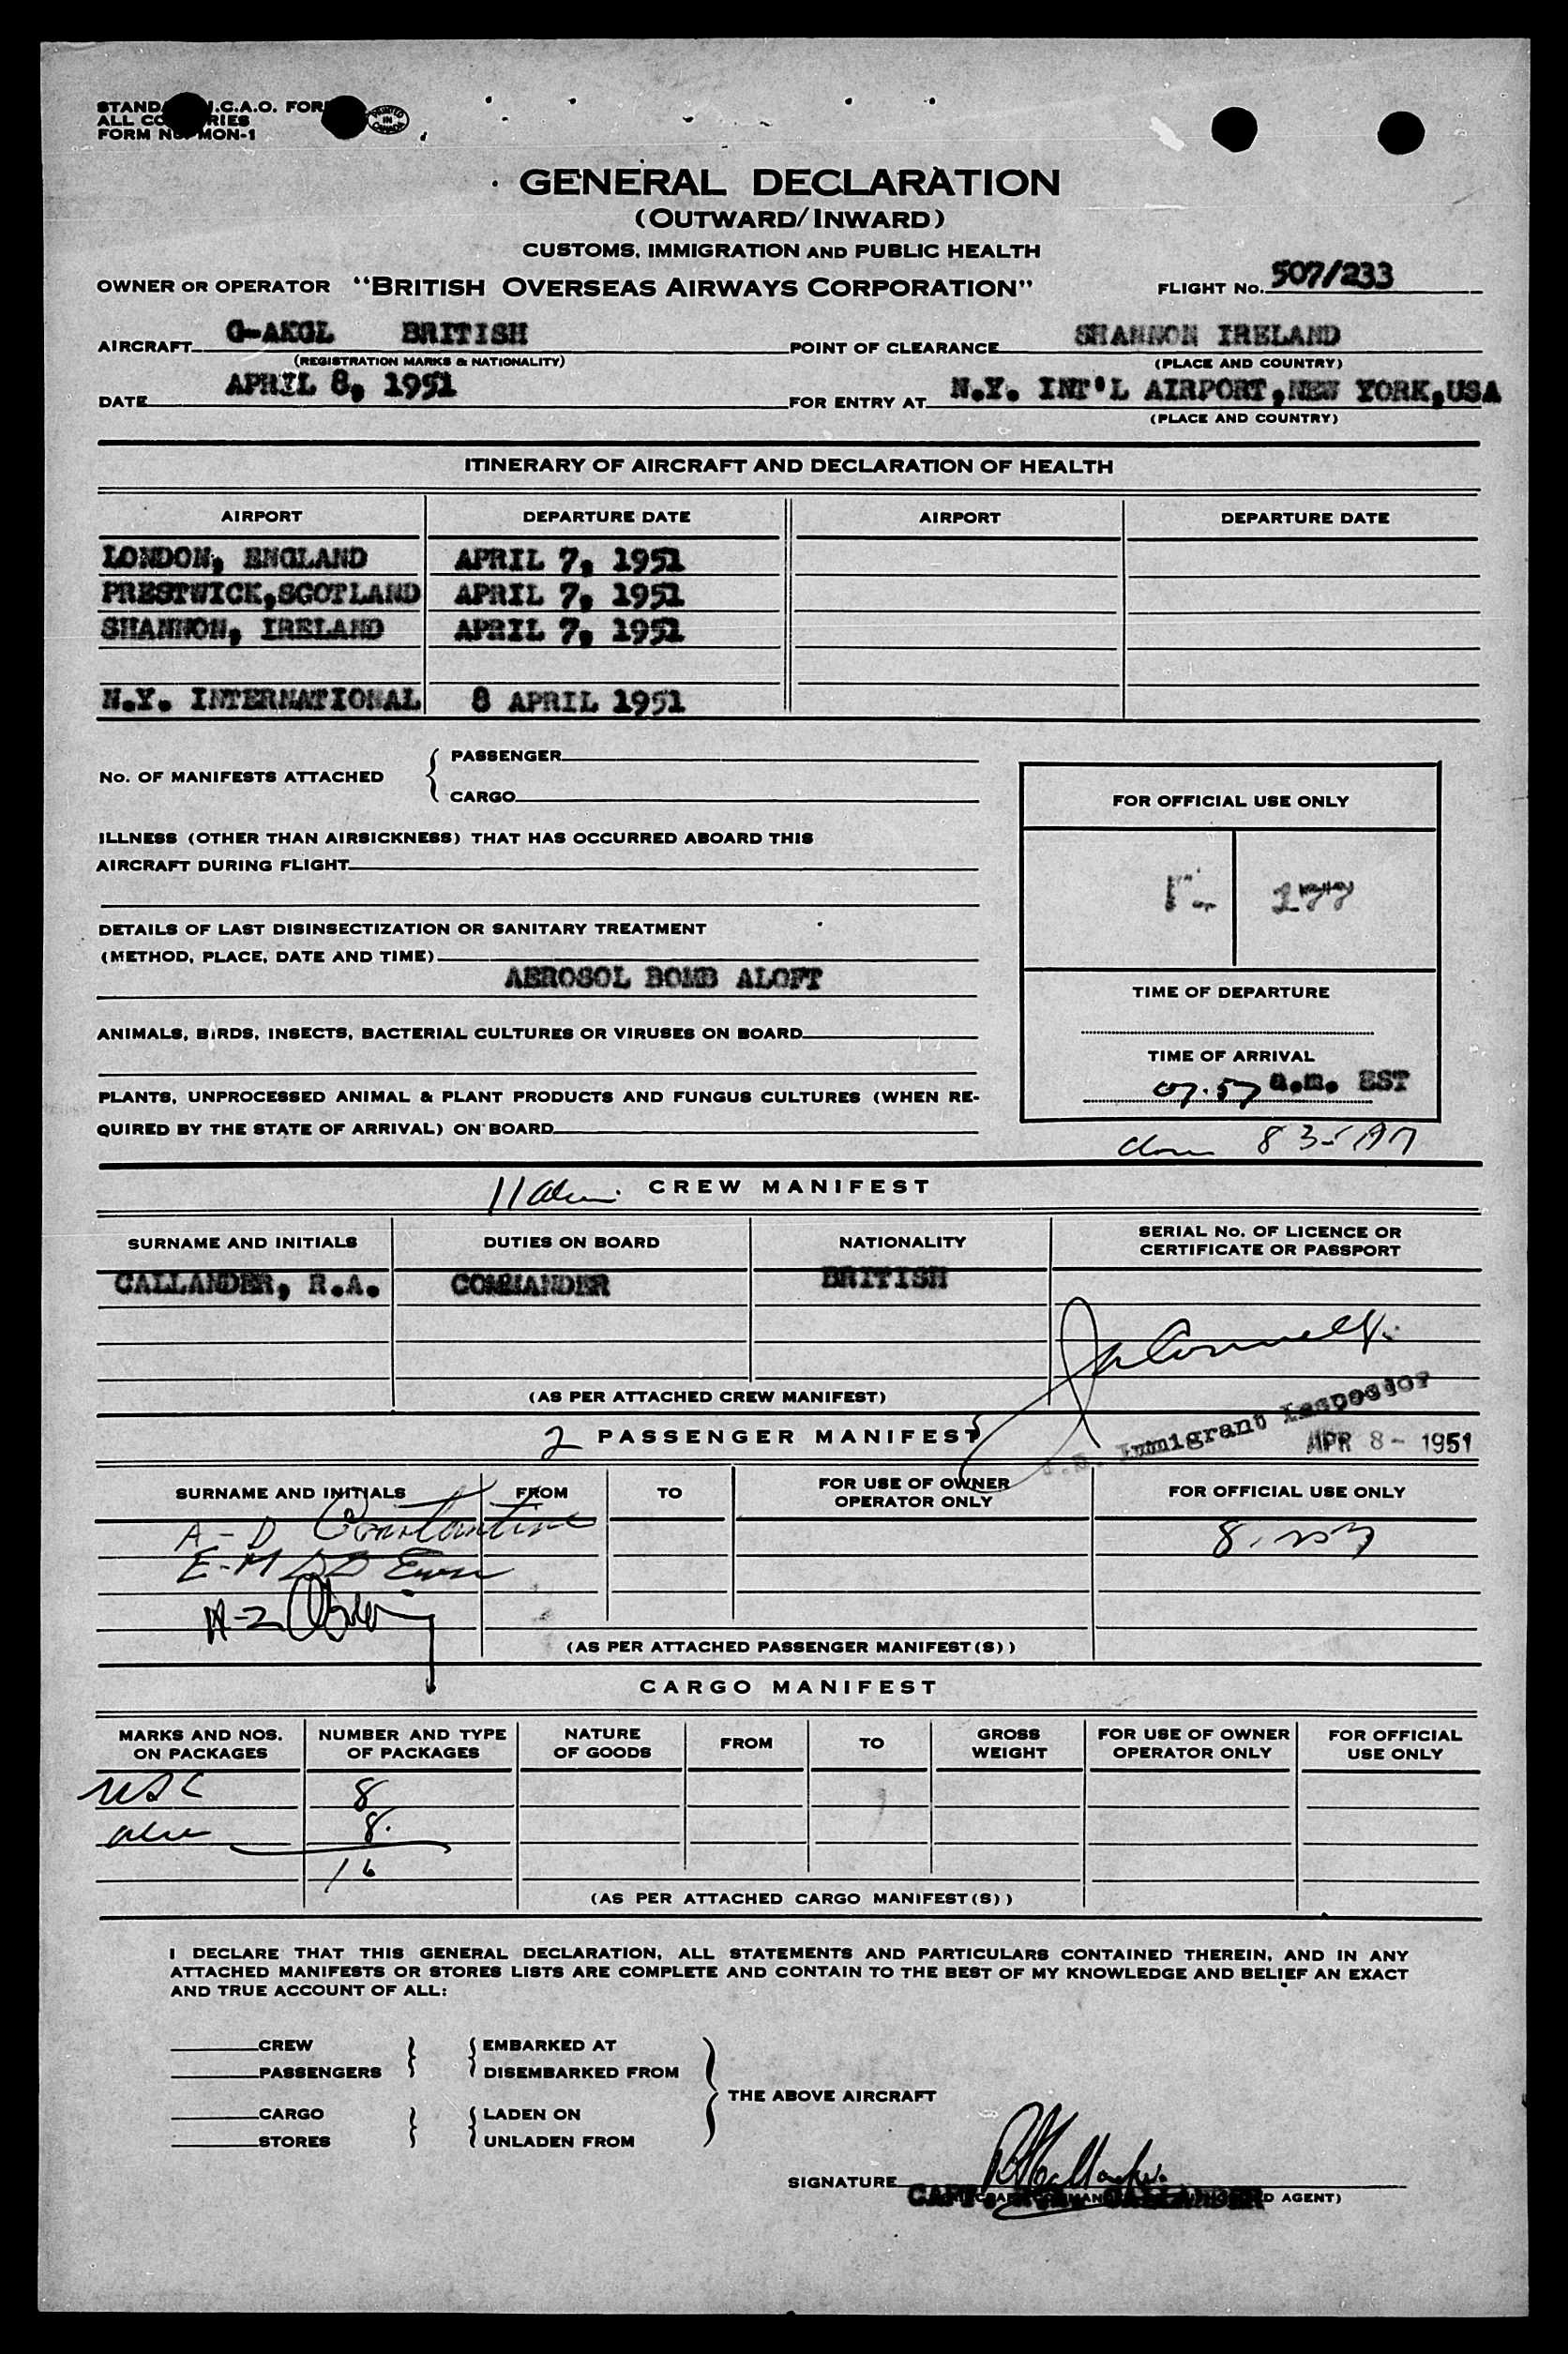 STANDARD I.C.A.O. FORM
ALL COUNTRIES
FORM No. MON-1
PRINTED IN CANADA
GENERAL DECLARATION
(OUTWARD/INWARD)
CUSTOMS, IMMIGRATION AND PUBLIC HEALTH
OWNER OR OPERATOR "BRITISH OVERSEAS AIRWAYS CORPORATION" FLIGHT No. 507/233
AIRCRAFT G-AKGL BRITISH POINT OF CLEARANCE SHANNON IRELAND
(REGISTRATION MARKS & NATIONALITY) (PLACE AND COUNTRY)
DATE APRIL 8, 1951 FOR ENTRY AT N.Y. INT'L AIRPORT,NEW YORK,USA
(PLACE AND COUNTRY)
ITINERARY OF AIRCRAFT AND DECLARATION OF HEALTH
AIRPORT DEPARTURE DATE AIRPORT DEPARTURE DATE
LONDON, ENGLAND APRIL 7, 1951
PRESTWICK,SCOTLAND APRIL 7, 1951
SHANNON, IRELAND APRIL 7, 1951
N.Y. INTERNATIONAL 8 APRIL 1951
No. OF MANIFESTS ATTACHED
PASSENGER
CARGO
ILLNESS (OTHER THAN AIRSICKNESS) THAT HAS OCCURRED ABOARD THIS
AIRCRAFT DURING FLIGHT
DETAILS OF LAST DISINSECTIZATION OR SANITARY TREATMENT
(METHOD, PLACE, DATE AND TIME)
AEROSOL BOMB ALOFT
ANIMALS, BIRDS, INSECTS, BACTERIAL CULTURES OR VIRUSES ON BOARD
PLANTS, UNPROCESSED ANIMAL & PLANT PRODUCTS AND FUNGUS CULTURES (WHEN RE-
QUIRED BY THE STATE OF ARRIVAL) ON BOARD
FOR OFFICIAL USE ONLY
TIME OF DEPARTURE
TIME OF ARRIVAL
07.57 a.m. EST
8 35 AM
11 CREW MANIFEST
SURNAME AND INITIALS DUTIES ON BOARD NATIONALITY SERIAL No. OF LICENCE OR
CERTIFICATE OR PASSPORT
CALLANDER, R.A. COMMANDER BRITISH
(AS PER ATTACHED CREW MANIFEST)
Immigrant Inspector
APR 8 - 1951
2 PASSENGER MANIFEST
SURNAME AND INITIALS FROM TO FOR USE OF OWNER
OPERATOR ONLY FOR OFFICIAL USE ONLY
A-D Constantine
E-M
N-Z
(AS PER ATTACHED PASSENGER MANIFEST(S))
CARGO MANIFEST
MARKS AND NOS.
ON PACKAGES NUMBER AND TYPE
OF PACKAGES NATURE
OF GOODS FROM TO GROSS
WEIGHT FOR USE OF OWNER
OPERATOR ONLY FOR OFFICIAL
USE ONLY
USC 8
8.
16
(AS PER ATTACHED CARGO MANIFEST(S))
I DECLARE THAT THIS GENERAL DECLARATION, ALL STATEMENTS AND PARTICULARS CONTAINED THEREIN, AND IN ANY
ATTACHED MANIFESTS OR STORES LISTS ARE COMPLETE AND CONTAIN TO THE BEST OF MY KNOWLEDGE AND BELIEF AN EXACT
AND TRUE ACCOUNT OF ALL:
CREW EMBARKED AT
PASSENGERS DISEMBARKED FROM
THE ABOVE AIRCRAFT
CARGO LADEN ON
STORES UNLADEN FROM
SIGNATURE
CAPT. R.A. CALLANDER AGENT)